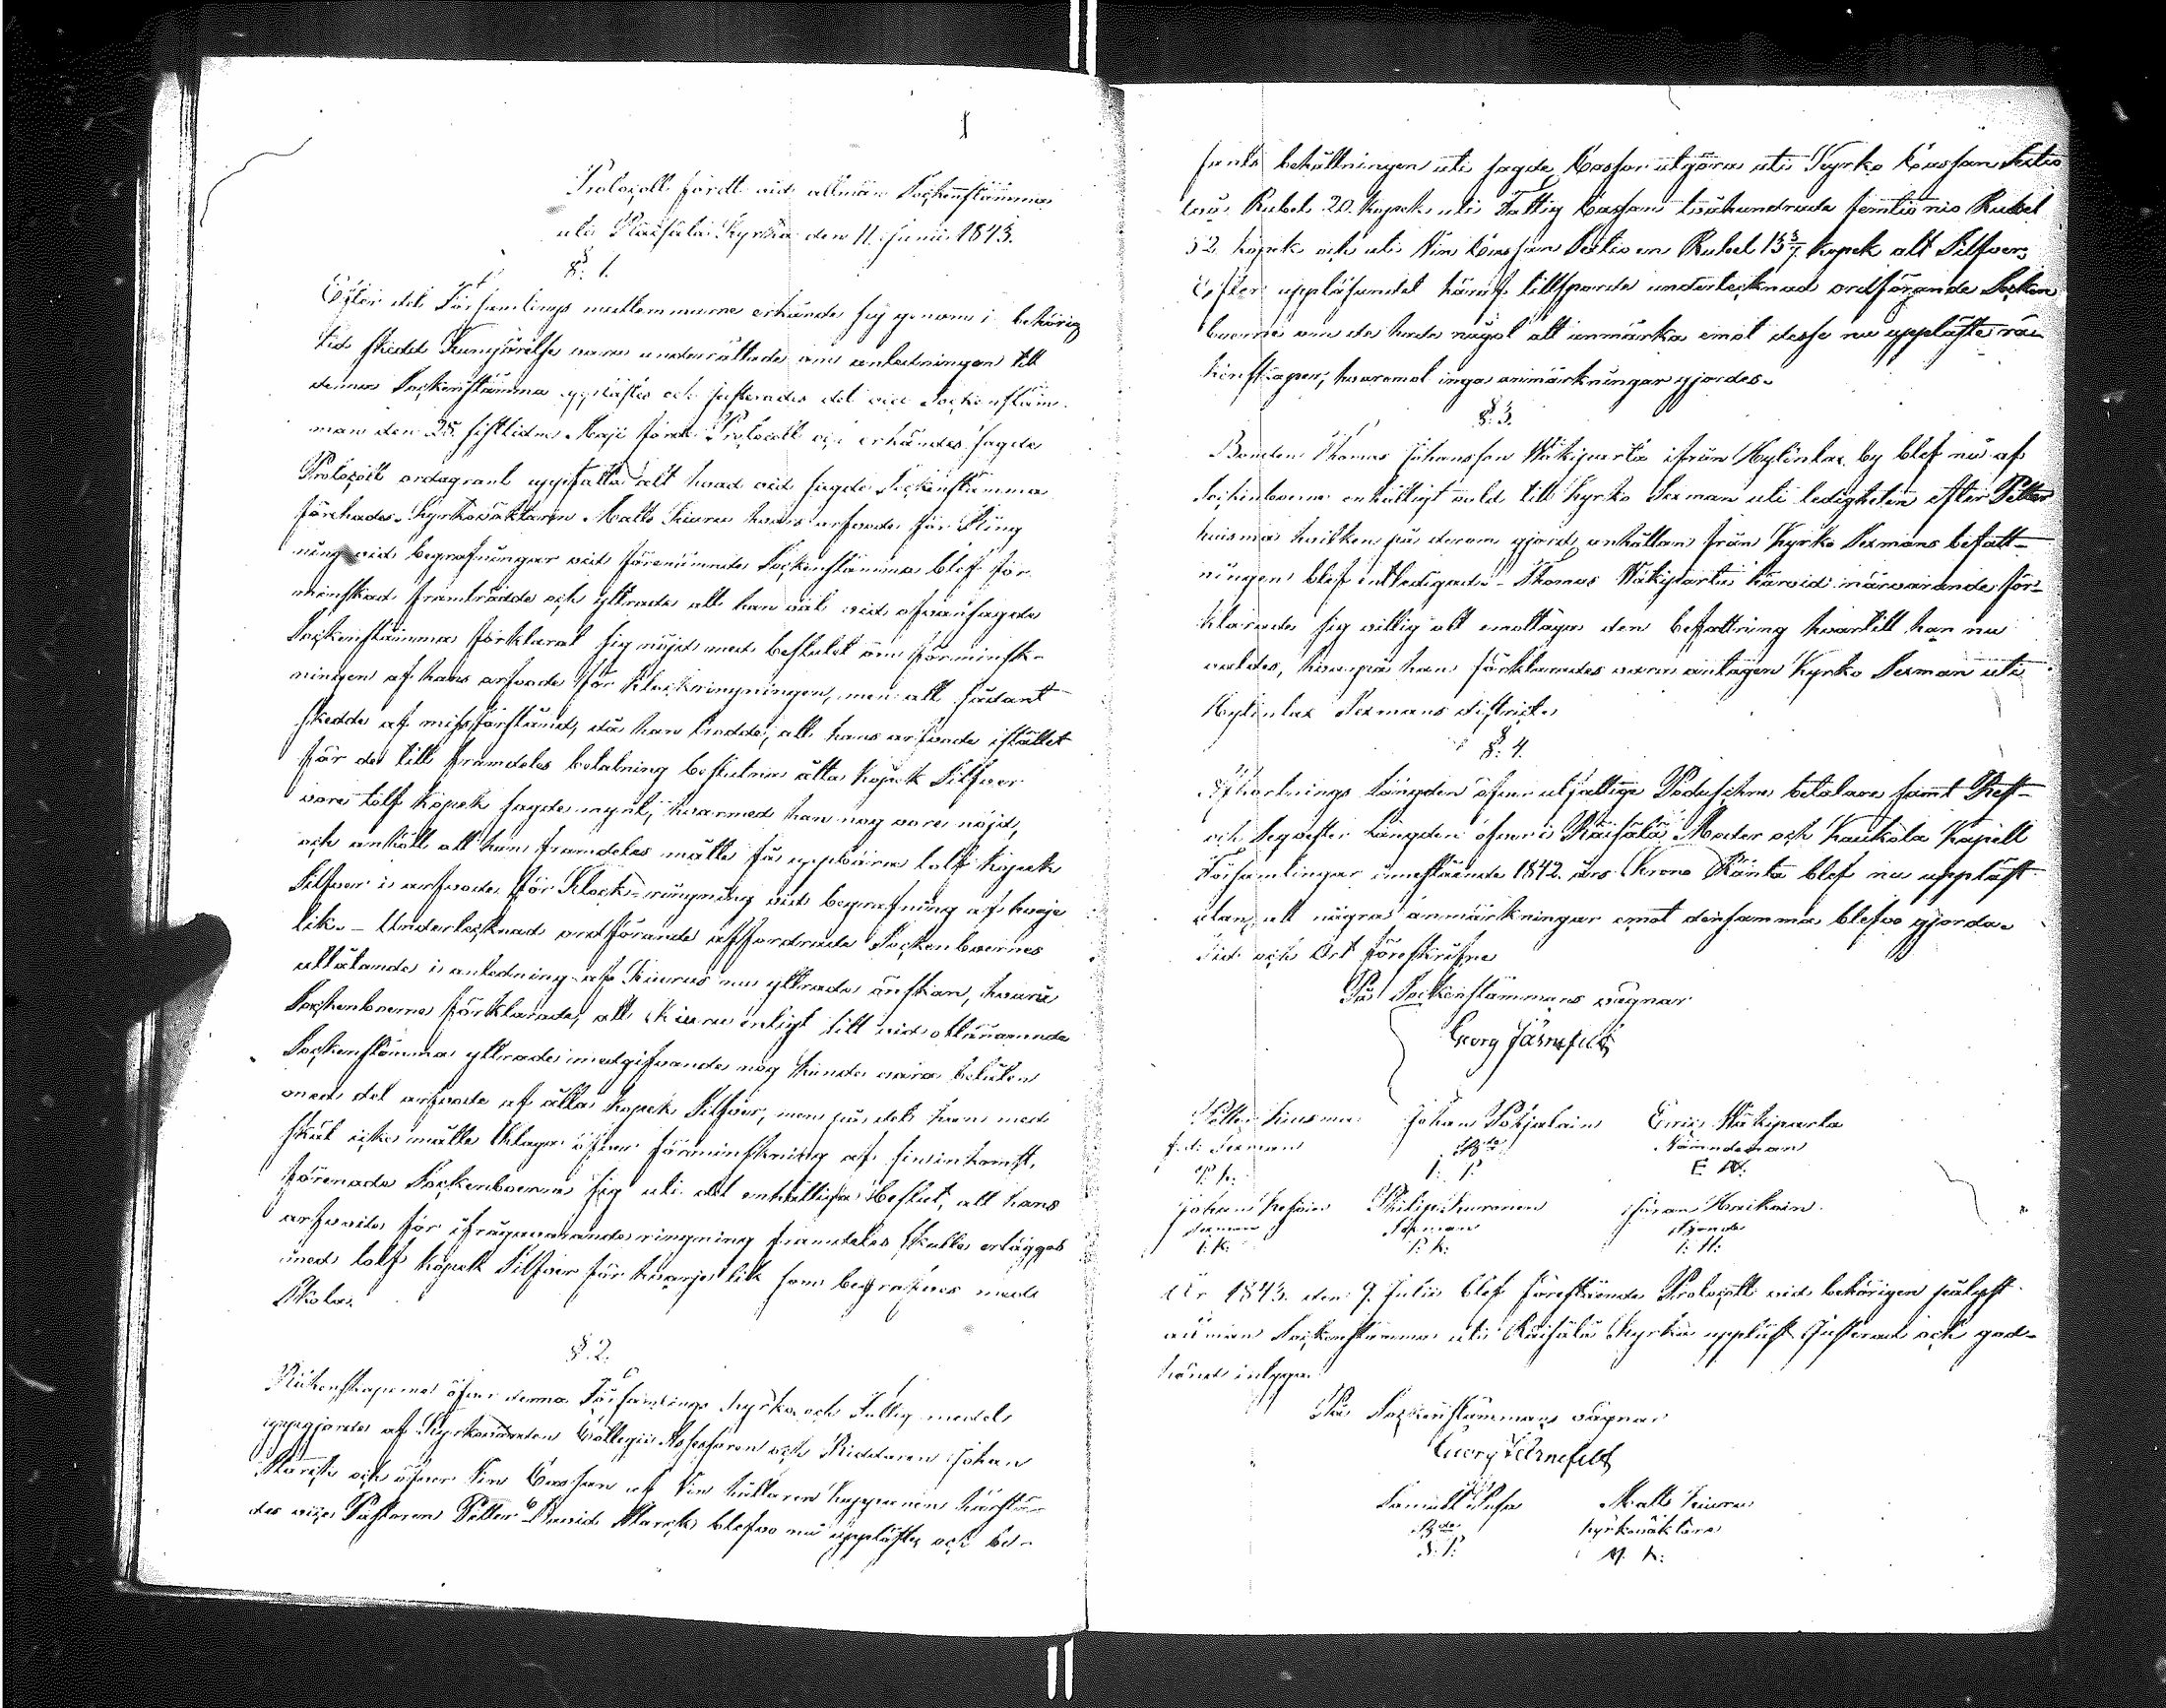 1
Protocoll fördt vid allmän Sockenstämma
uti Räisälä Kyrka den 11. Junii 1843.
§. 1.
Efter det Församlings medlemmarne erkände sig genom i behörig
tid skedd Kungörelse vara underrättade om anledningen till
denna Sockenstämma upplästes och justerades det vid Sockenstäm-
man den 25. sistlidne Maji förde Protocoll och erkändes sagde
Protocoll ordagrant uppfatta allt hvad vid sagde Sockenstämma
förehades. Kyrkoväktaren Matts Kiuru hvars arfvode för Ring
ning vid begrafningar vid förenämnde Sockenstämma blef för
minskad framträdde och yttrade att han väl vid ofvansagde
Sockenstämma förklarat sig nöjd med beslutet om förminsk-
ningen af hans arfvode för klockringningen, men att sådant
skedde af missförstånd, då han trodde, att hans arfvode istället
för de till framdeles betalning beslutna åtta kopek Silfver
vore tolf kopek sagde mynt, hvarmed han nog vore nöjd,
och anhöll att han framdeles måtte få uppbära tolf kopek
Silfver i arfvode för Klock-ringning vid begrafning af hvarje
lik. - Undertecknad ordförande affordrade Sockenboernes
utlåtande i anledning af Kiurus nu yttrade önskan, hvarå
Sockenboerne förklarade, att Kiuru enligt sitt vid ofvannämnde
Sockenstämma yttrade medgifvande nog kunde vara belåten
med det arfvode af åtta kopek Silfver, men på det han med
skäl icke måtte klaga öfver förminskning af sin inkomst,
förenade Sockenboerne sig uti det enhälliga beslut, att hans
arfvode för ifrågavarande ringning framdeles skulle erläggas
med tolf kopek Silfver för hvarje lik som begrafves med
Klocka.
§. 2.
Räkenskaperne öfver denna Församlings Kyrko och Fattig medel
uppgjorde af Kyrkoherden Collegii Assessoren och Riddaren Johan
Marck och öfver Vin Cassan af Vin hållaren Kapperinen härstä-
des vice Pastoren Petter David Marck blefvo nu uppläste och be-
fants behållningen uti sagde Cassor utgöra uti Kyrko Cassan Sextio
två Rubel 20. kopek uti Fattig Cassan tvåhundrade femtio nio Rubel
52. kopek och uti Vin Cassan Sextio en Rubel 13 5/7 kopek allt Silfver;
Efter uppläsandet häraf tillsporde undertecknad ordförande Socken
boerne om de hade något att anmärka emot desse nu uppläste rä-
kenskaper, hvaremot inga anmärkningar gjordes.
§. 3.
Bonden Thomas Johansson Näkiparta ifrån Hytinlax by blef nu af
Sockenboerne enhälligt vald till Kyrko Sexman uti ledigheten efter Petter
Kiisma hvilken på derom gjord anhållan från Kyrko Sexmans befatt-
ningen blef entledigad - Thomas Näkiparta härvid närvarande för-
klarade sig villig att emottaga den befattning hvartill han nu
valdes, hvarpå han förklarades vara antagen Kyrko Sexman uti
Hytinlax Sexmans district.
§. 4.
Afkortnings Längden öfver utfattige Poduschne betalare samt Rest-
och Seqvester Längden öfver i Räisälä Moder och Kaukola Kapell
Församlingar innestående 1842. års Krono Ränta blef nu uppläst
utan att några anmärkningar emot densamma blefvo gjorda.
Tid och Ort föreskrifne
På Sockenstämmans vägnar
Georg Järnefelt
Petter Kiisma Johan Pohjalain Eric Näkiparta
f. d. Sexman Bde Nämndeman
P. K. I. P. E. N.
Johan Kesäin Philip Kuronen Göran Haikoin
Sexman Sexman
I: K: P. K. I: H:
År 1843. den 9. Julii blef förestående Protocoll vid behörigen pålyst
allmän Sockenstämma uti Räisälä Kyrka uppläst Justerad och god-
känd intyga
På Sockenstämmans vägnar
Georg Järnefelt
Samuel Matts Kiuru
Bde Kyrkoväktare
S. P. M. K: